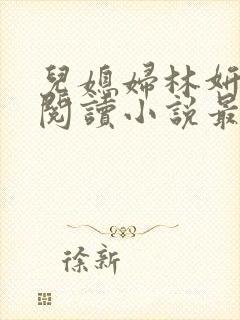 兒媳婦林妍
閱讀小說最
徐新